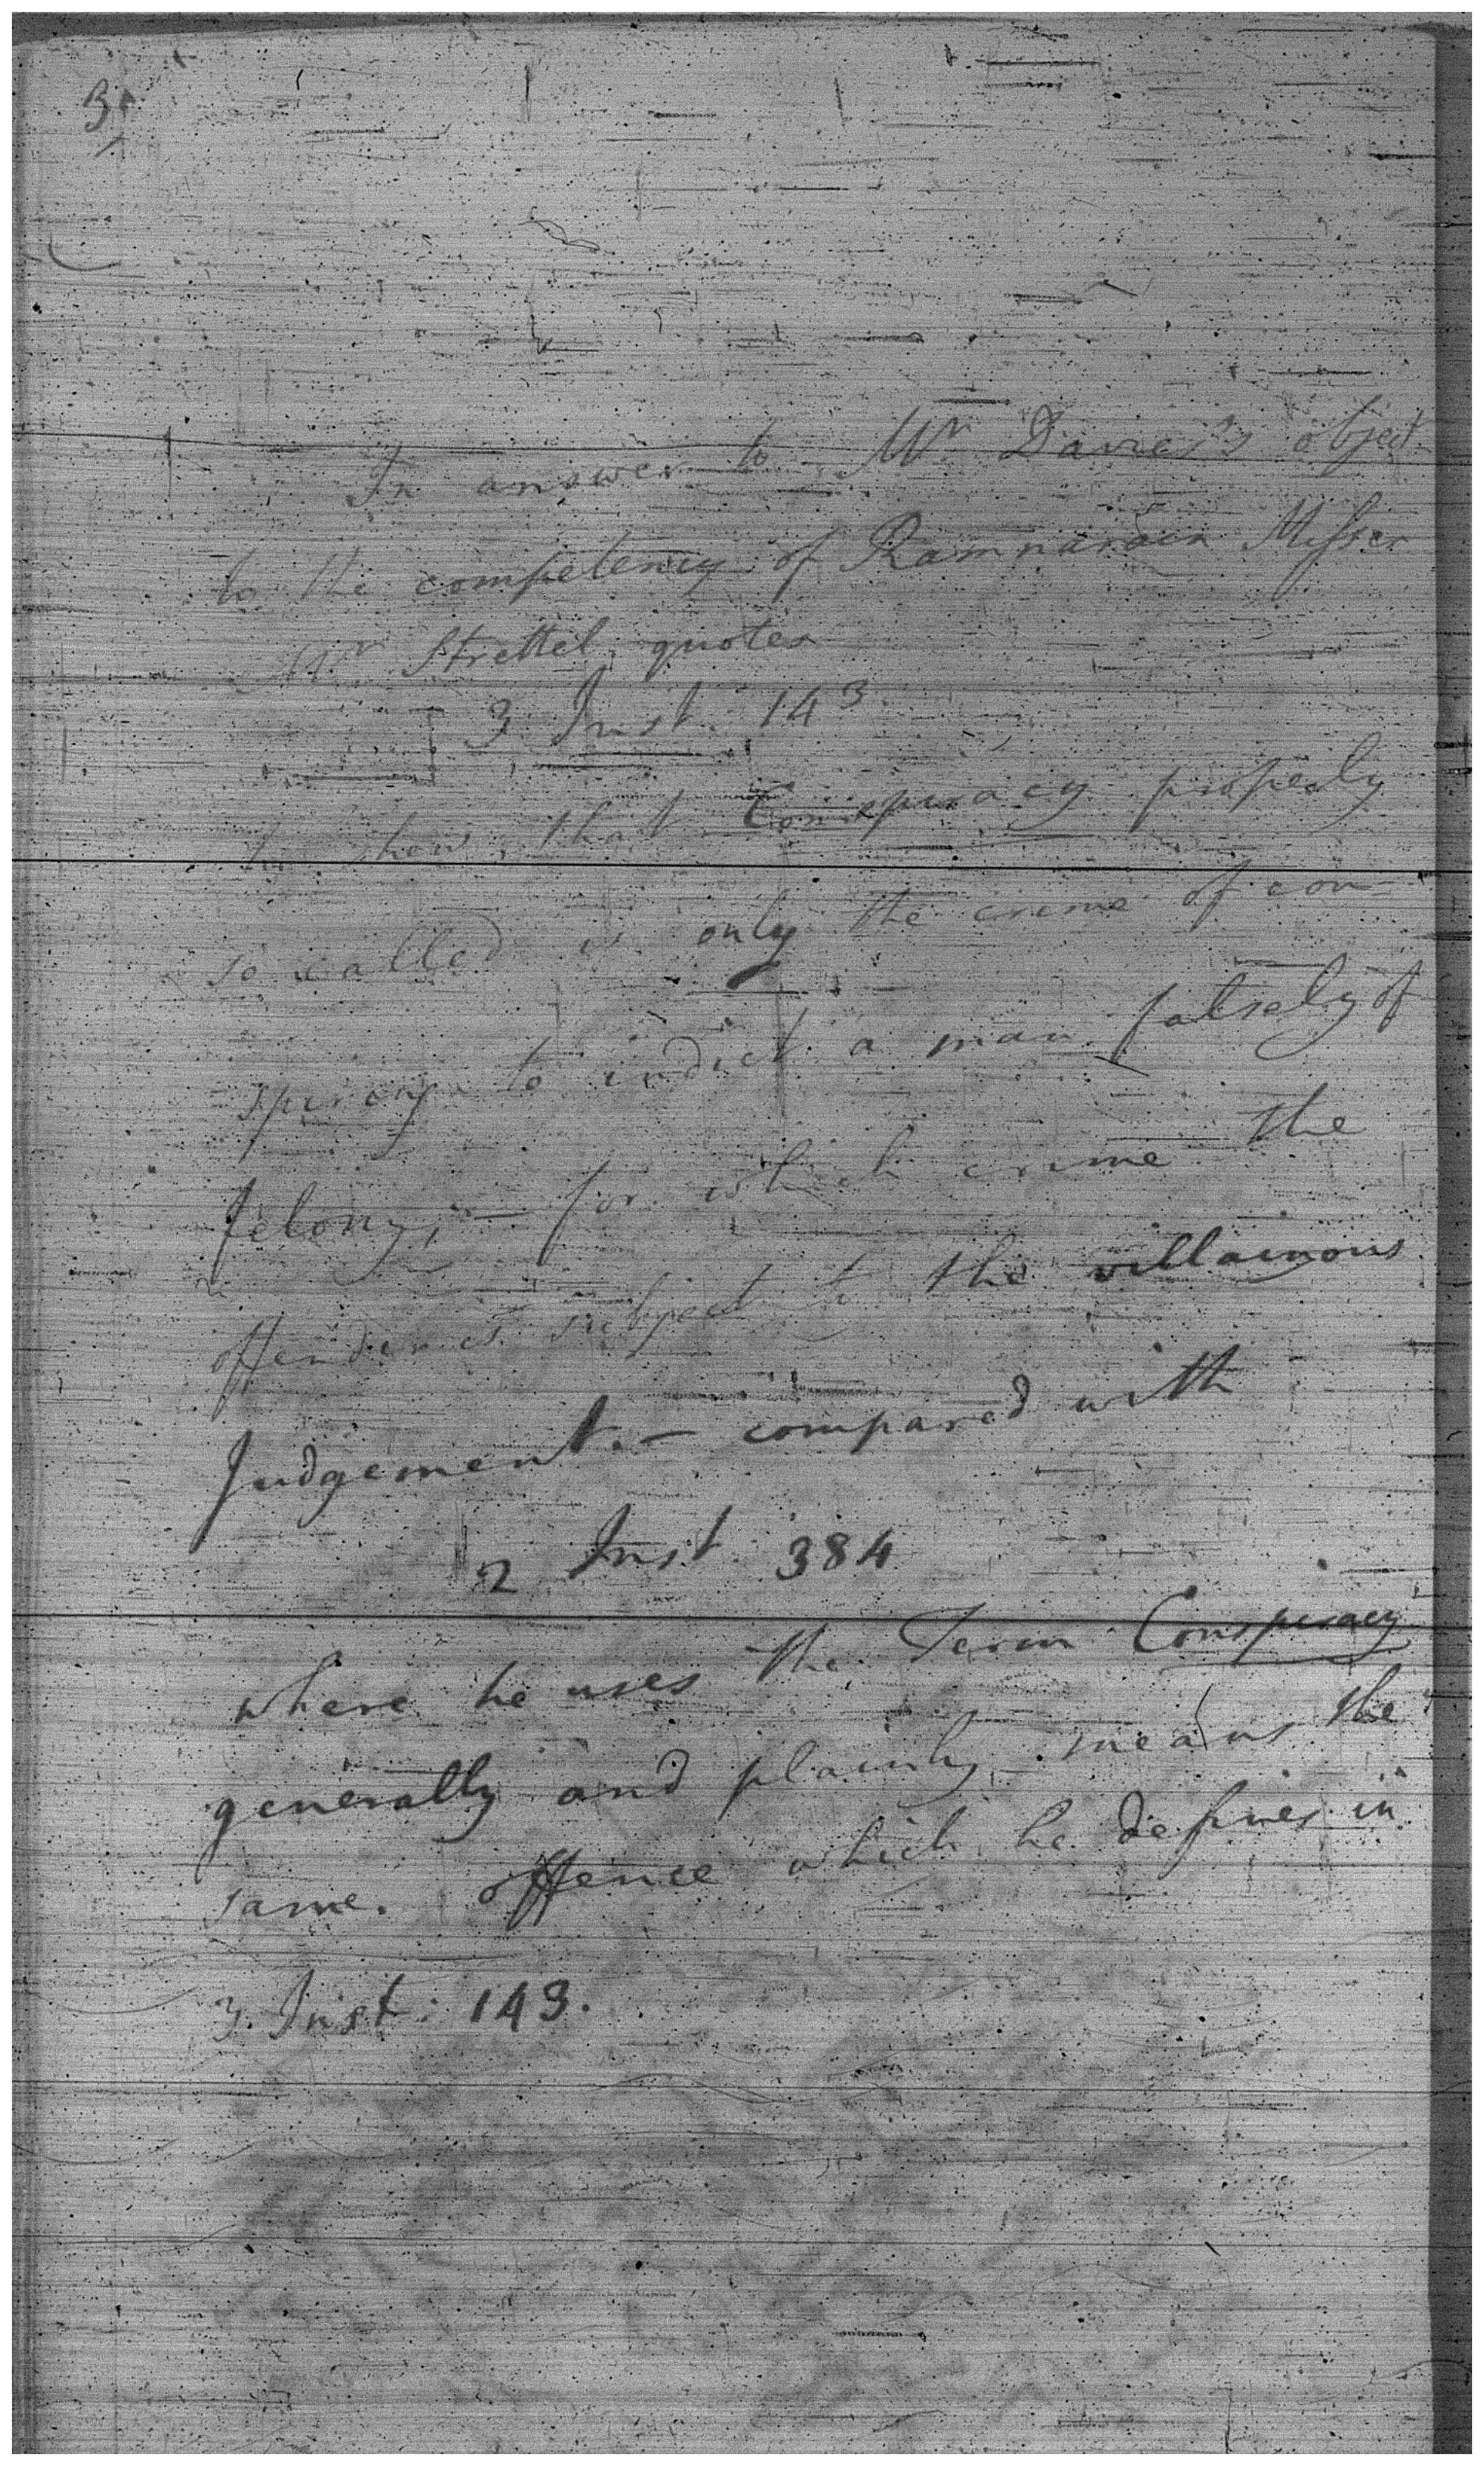 In answer to Mr Davies's object
to the competency of Ramnarain Misser
Mr Strettel quotes
3 Inst. 143
to show, that Conspiracy properly
so called is only the crime of con
spiring to indict a man falsely of
felony, — for which crime the
offender is subject to the villainous
Judgement. — compared with
2 Inst. 384
where he uses the Term Conspiracy
generally and plainly means the
same. offence which he defines in
3. Inst: 143.